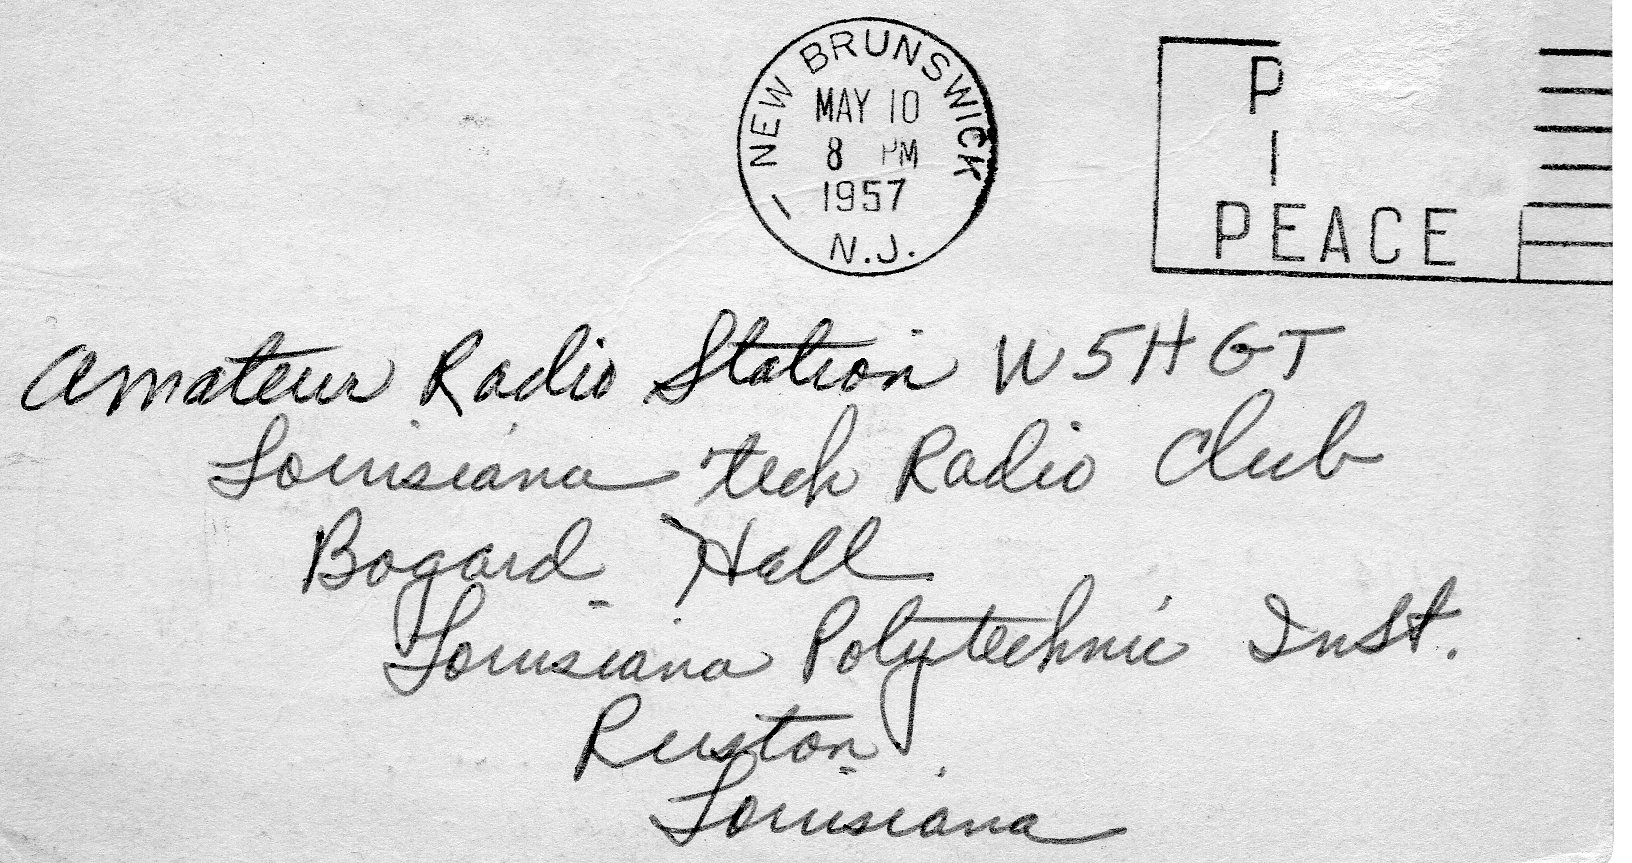 NEW BRUNSWICK 1
MAY 10
8 PM
1957
N.J.
P
I
PEACE
Amateur Radio Station W5HGT
Louisiana Tech Radio Club
Bogard Hall
Louisiana Polytechnic Inst.
Ruston
Louisiana